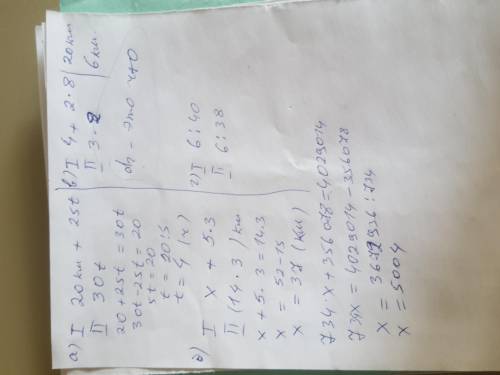 а) I 20 км + 25t
II 30t
20 + 25t = 30t
30t - 25t = 20
5t = 20
t = 20:5
t = 4 (ч)
б) I x + 5.3
II (14.3) км
x + 5.3 = 14.3
x = 52 - 15
x = 37 (км)
734·x + 356078 = 4029014
734x = 4029014 - 356078
x = 3672936 : 734
x = 5004
в) I 4 + 2·8 | 20 км
II 3·2 | 6 км.
г) I 6:40
II 6:38